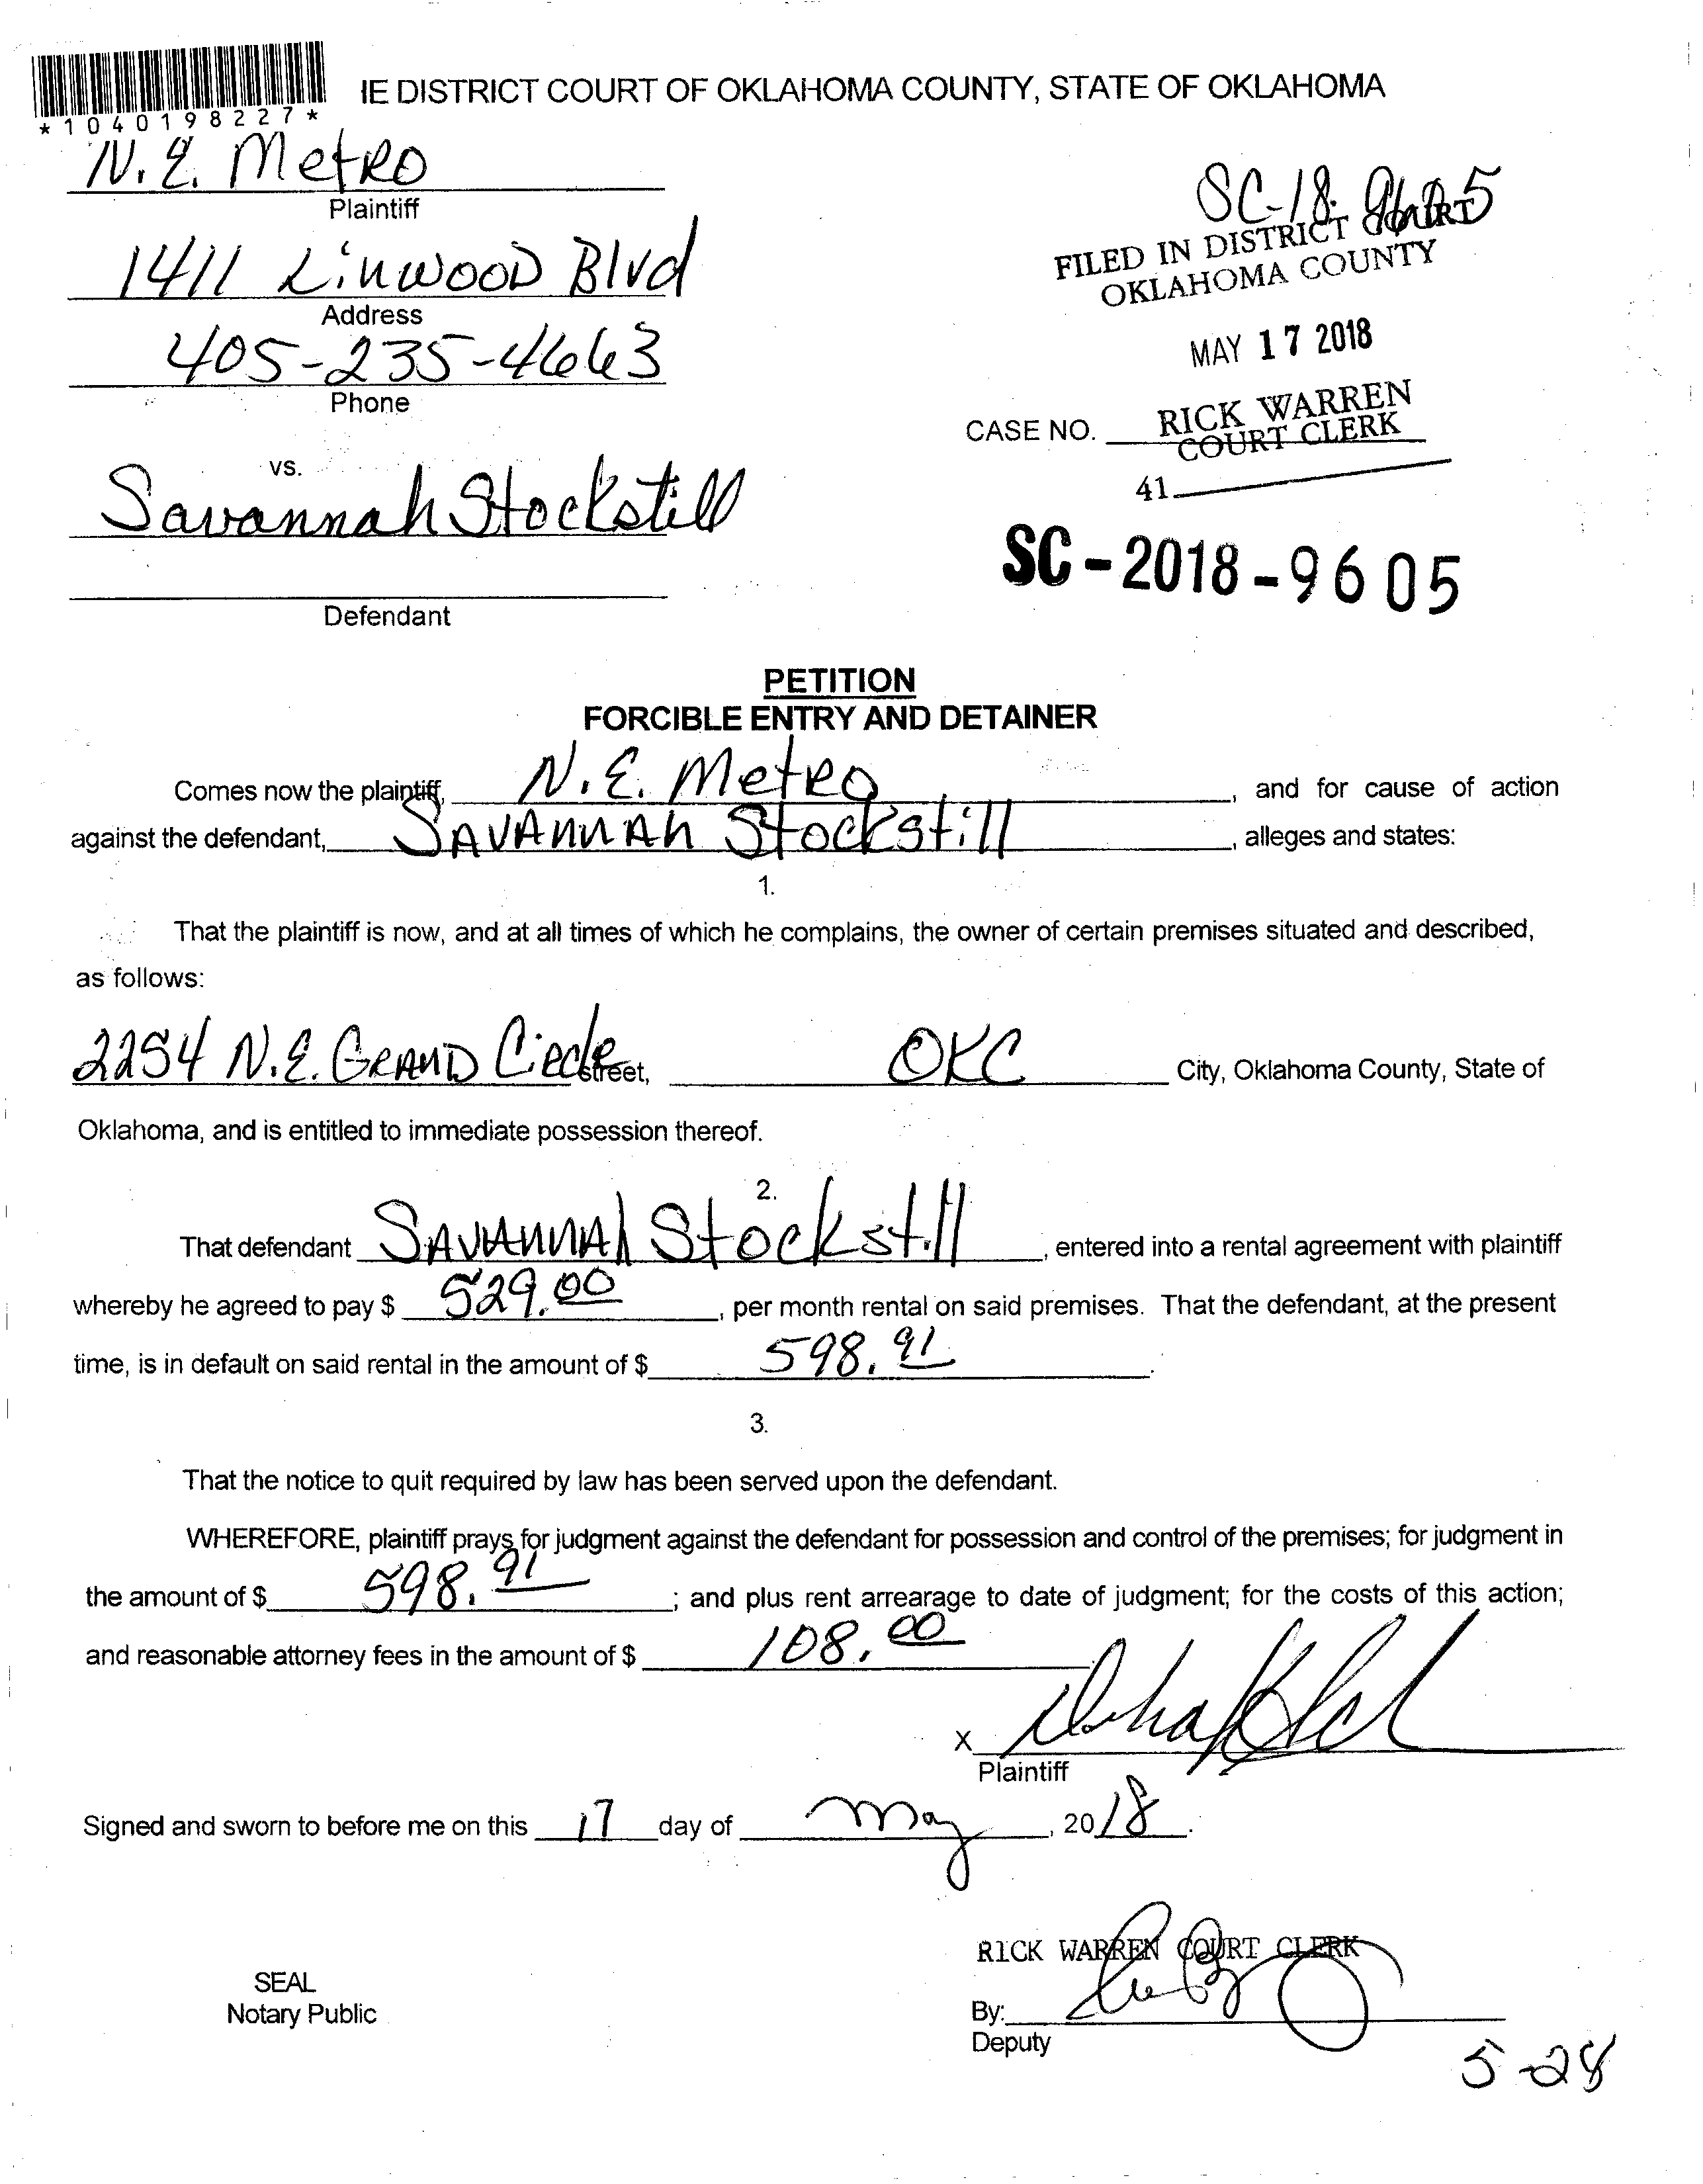 IE DISTRICT COURT OF OKLAHOMA COUNTY, STATE OF OKLAHOMA
*1040198227*
N.E. Metro
Plaintiff
SC-18-9605
1411 Linwood Blvd
Address
FILED IN DISTRICT COURT
OKLAHOMA COUNTY
405-235-4663
Phone
MAY 17 2018
CASE NO.
RICK WARREN
COURT CLERK
41
vs.
Savannah Stockstill
SC-2018-9605
Defendant
PETITION
FORCIBLE ENTRY AND DETAINER
Comes now the plaintiff, N.E. Metro, and for cause of action
against the defendant, Savannah Stockstill, alleges and states:
1.
That the plaintiff is now, and at all times of which he complains, the owner of certain premises situated and described,
as follows:
2254 N.E. Grand Circle street, OKC City, Oklahoma County, State of
Oklahoma, and is entitled to immediate possession thereof.
2.
That defendant Savannah Stockstill, entered into a rental agreement with plaintiff
whereby he agreed to pay $ 529.00, per month rental on said premises. That the defendant, at the present
time, is in default on said rental in the amount of $ 598.91.
3.
That the notice to quit required by law has been served upon the defendant.
WHEREFORE, plaintiff prays for judgment against the defendant for possession and control of the premises; for judgment in
the amount of $ 598.91; and plus rent arrearage to date of judgment; for the costs of this action;
and reasonable attorney fees in the amount of $ 108.00.
X
Plaintiff
Signed and sworn to before me on this 17 day of May, 2018.
RICK WARREN COURT CLERK
SEAL
Notary Public
By:
Deputy
5-24